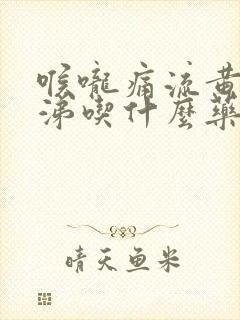 喉嚨痛流黄
涕喫什麼藥
晴天鱼米